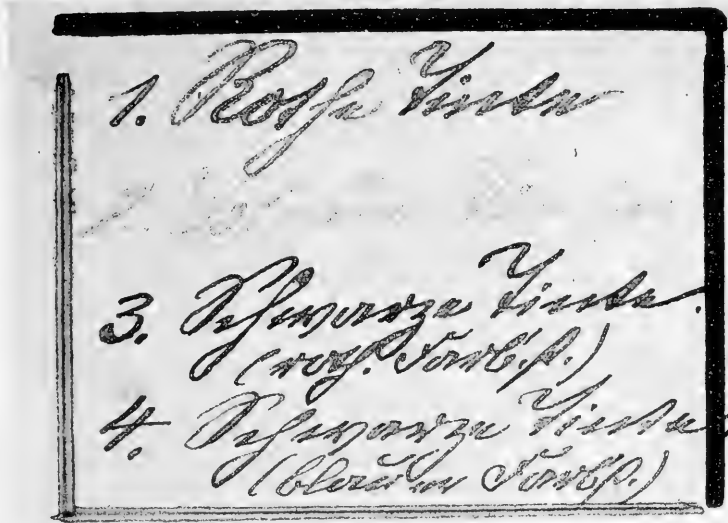 1. Rothe Tinte
3. Schwarze Tinte.
(roth. Farbst.)
4. Schwarze Tinte
(blauen Farbst.)